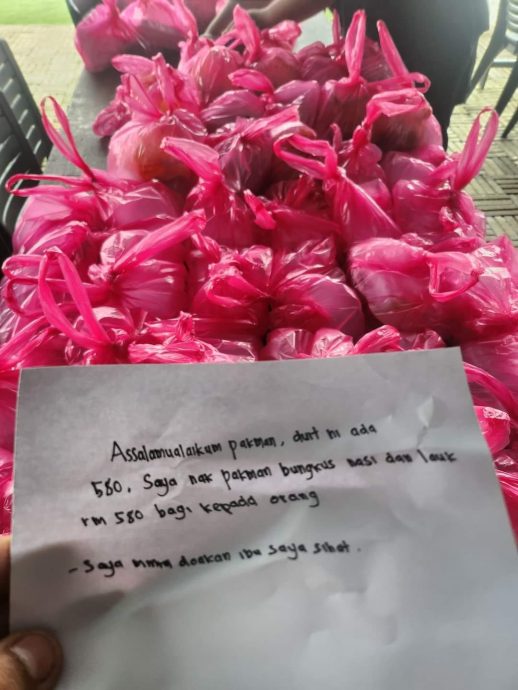 Assalamualaikum pakman, duit ni ada
580. Saya nak pakman bungkus nasi dan lauk
rm 580 bagi kepada orang
- Saya minta doakan ibu saya sihat.